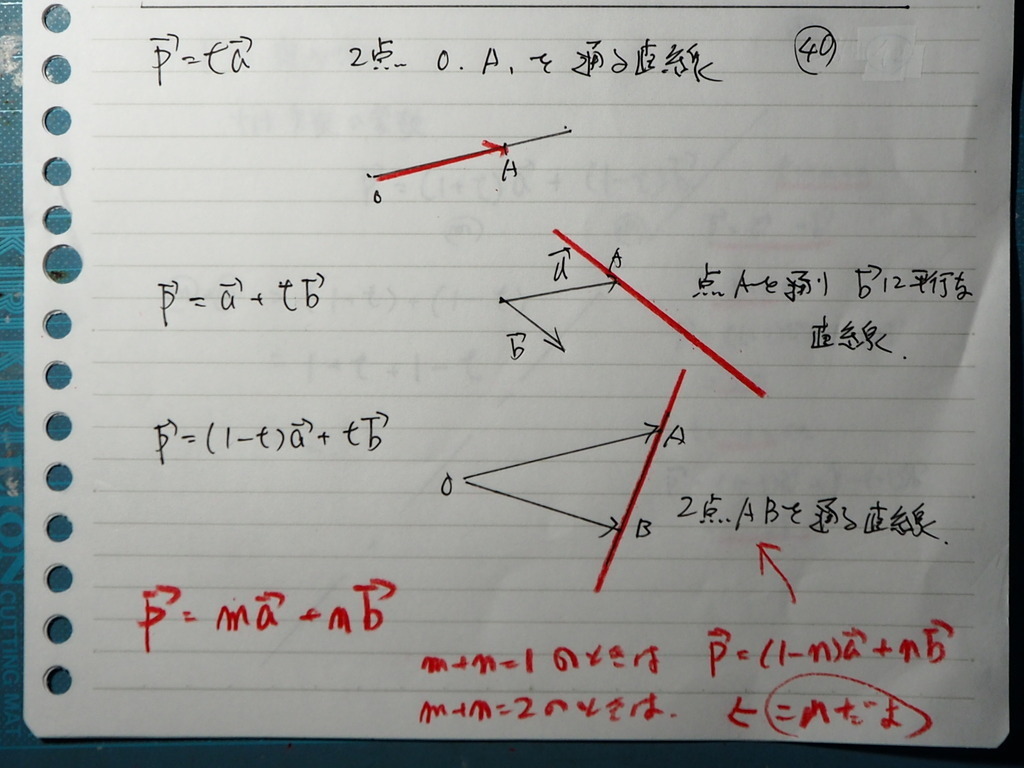 p⃗ = ta⃗ 2点 O. A. を通る直線 ㊵
O A
a⃗ A
p⃗ = a⃗ + tb⃗ 点Aを通り b⃗に平行な
b⃗ 直線.
p⃗ = (1-t)a⃗ + tb⃗
A
O
B 2点ABを通る直線.
p⃗ = ma⃗ + nb⃗
m+n=1 のときは p⃗ = (1-n)a⃗ + nb⃗
m+n=2 のときは. ← =mだよ